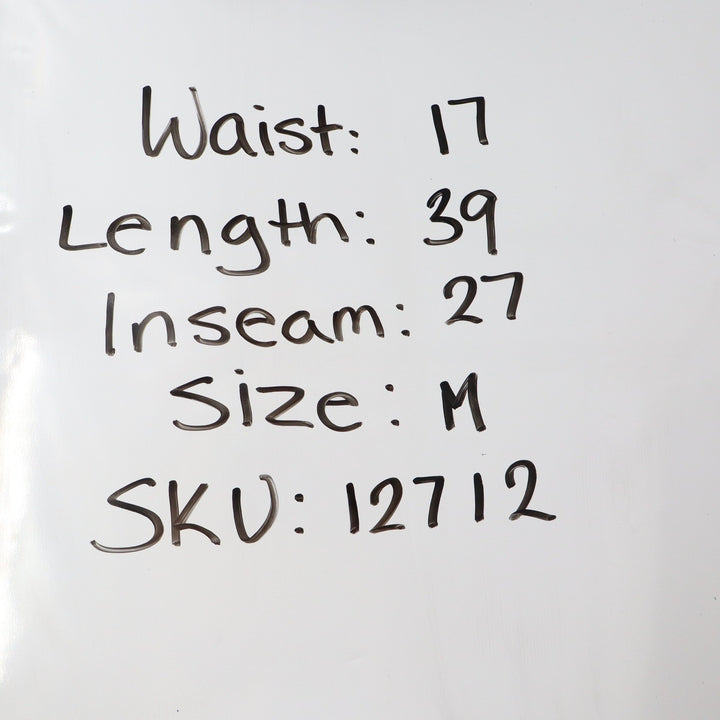 Waist: 17
Length: 39
Inseam: 27
Size: M
SKU: 12712